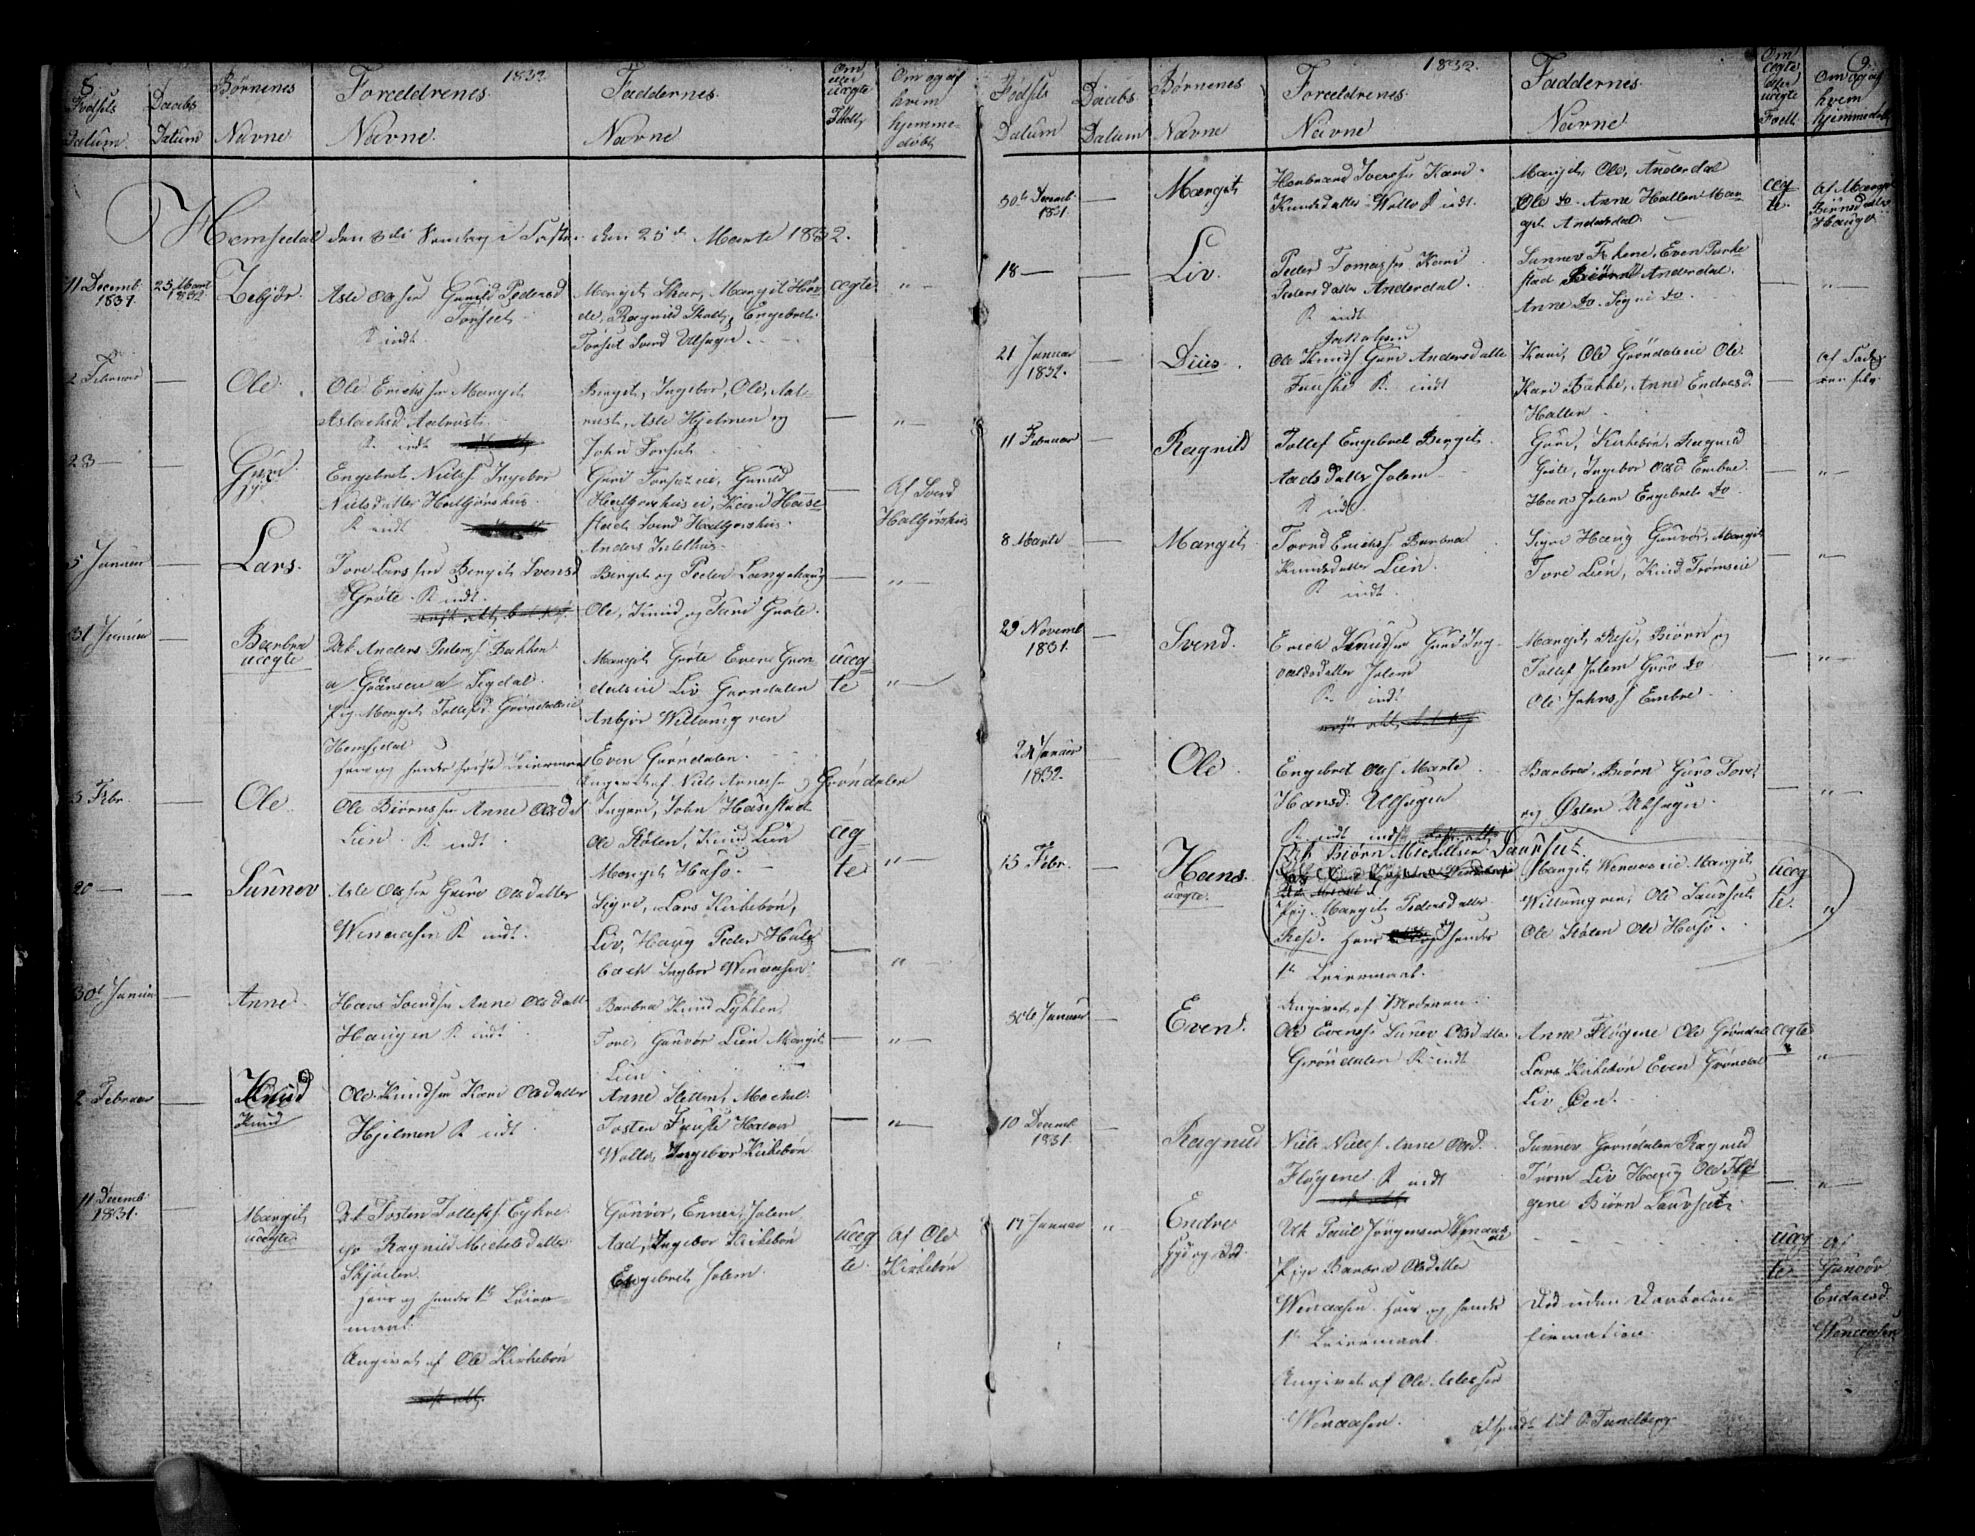 8.
1832
Fødsels Datum
Daabs Datum
Børnenes Navne
Forældrenes Navne
Faddernes Navne
Om ægte eller uægte Født
Om og af hvem hjemmedøbt
Hemsedal den 3die Søndag i Faste den 25de Marts 1832.
11 Decemb. 1831
25 Marti 1832
Asle Olsen Gunild Pedersd
Torset.
R indt
Margit Skar, Margit Hov
de, Ragnild Skolt, Engebret
Torset Svend Ulsager.
ægte
2 Februar
Ole.
Ole Erichsen Margit
Aslachsd Aalrust
R indt
Bergit, Ingebor, Ole, Aal-
rust, Asle Hjelmen og
John Torset
23
Guri
Engebret Niels Ingebor
Nielsdatter Halbjørshus
R indt
Guri Torset Gunild
Svend Halbjørshus
Anders
Af Svend
Halbjørshus
5 Januar
Lars.
Tore Larssen Bergit Svensd
Grøte R indt
Bergit og Peder Langehaug
Ole, Knud og Guri Grøte.
31 Januar
Barbra
uægte
Uk Anders Pedersen Bakken
af Sigdal
Pig Margit Tollefsd. Grøndalen
Hemsedal
hans og hendes første Leiermaal
Margit Grøte Even Grøn
dalseie Liv Grøndalen
Anbjør Willamyren
Even Grøndalen.
Angivet af Niels Arnesen Grøndalen
uæg
te
3 Febr.
Ole.
Ole Biørnsen Anne Olsdat
Lien. R indt
Ingeri, John Hasestad
Ole Støten, Knud Lien
Margit Haso.
æg
te
20
Sunnev
Asle Olssen Guro Olsdatter
Wenaasen R indt.
Sigri, Lars Kirkebøn,
Liv, Haug Peder Hulz
back Ingbor Wenaasen
30te Januar
Anne
Hans Svendsen Anne Olsdatt
Haugen R indt
Barbra Knud Lykken,
Tore, Gunvor Lien Margit
Lien
2 Februar
Knud
Knud
Ole Knudsen Kari Olsdatter
Hjelmen R indt
Anne Sletten, Mechel
Tosten Fauske Halvor
Wolla, Ingebor Kirkebøn
11 Decemb. 1831.
Margit
uægte
Uk Tosten Tollefs. Eykre
Pg Ragnild Michelsdatter
Skjøelen
hans og hendes 1te Leier-
maal
Angivet af Ole Kirkebøn
Gunvor, Enner, Jolem
Aad, Ingebor Kirkebøn
Engebret Jolem
uæg
te
Af Ole
Kirkebøn
9.
1832.
Fødsels Datum
Daabs Datum
Børnenes Navne
Forældrenes Navne
Faddernes Navne
Om ægte eller uægte Født
Om og af hvem hjemmedøbt
30te Decemb 1831.
Margit
Kari
Knudsdatter Wolla R indt.
Margit, Ole, Anderdal
Ole do. Anne Hallen Mar
git Anderdal
æg
te
Af Margit
Biørnsdatter
Hauge
18
Liv.
Peder Tomassen Kari
Pedersdatter Anderdal.
R indt
Sunnev Fekene, Even
Biørn Anderdal.
Anne do. Sigri do.
21 Januar 1832.
Ole Knuds Guri Andersdatter
Fauske R indt
Kari, Ole Grøndalseie Ole.
Kari Bakke, Anne Endresd.
Hallen
11 Februar
Ragnild
Tollef Engebret Bergit
Aadsdatter Jolem
R indt
Guri, Kirkebøn, Ragnild
Grøte, Ingebor Olsd Embre
Hans Jolem Engebret do
8 Marti
Margit
Trond Erichs Barbra
Knudsdatter Lien.
R indt.
Sigri Haug Gunvor, Margit
Tore Lien, Knud
29 Novemb 1831.
Svend.
Erich Knudsen Guri Ing-
valdsdatter Jolem
R indt
Margit, Rese, Biørn og
Tollef Jolem Guro do
Ole Johns. Embre
24 Januar 1832.
Ole
Engebret Ols. Marte
Hansd. Ulsager
Barbra, Biørn Guro Tore,
og Østen Ulsager.
15 Febr.
Hans.
uægte.
Uk Biørn Michelsen Laurset.
Pig Margit Pedersdatter
Rese. hans og hendes
1te Leiermaal.
Angivet af Moderen
Margit Wenaaseie Margit
Willamyren, Ole Laurset
Ole Støten Ole Haso.
uæg
te.
30te Januar
Even.
Ole Evens. Sunev Olsdatter
Grøndalen R indt
Anne Fløgene Ole Grøndal
Lars Kirkebøn Even Grøndal
Liv Øen.
ægte
10 Decemb 1831.
Ragnild
Niels Niels. Anne Olsd.
Fløgene. R indt
Sunnev Grøndalen Ragnild
Trøm Liv Haug Ole Flø
gene Biørn Laurset.
17 Januar
Endre
Uk Paul Jørgensen
Pige Barbra Olsdatter
Wenaasen. hans og hendes
1te Leiermaal.
Angivet af Ole Aslessen
Wenaasen.
Død uden Daabskon
firmation.
uæg
te
Af
Gunvor
Endresd
Wenaasen